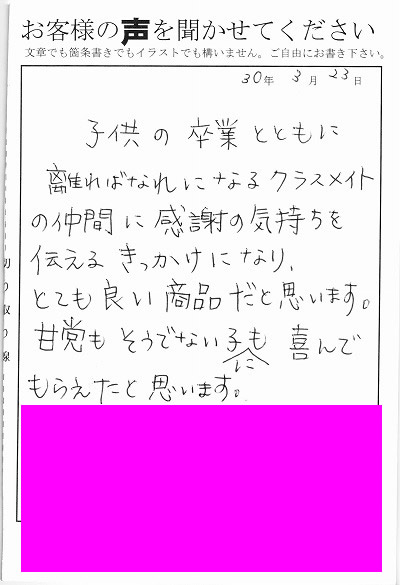 お客様の声を聞かせてください
文章でも箇条書きでもイラストでも構いません。ご自由にお書き下さい。
30年 3月 23日
子供の卒業とともに
離ればなれになるクラスメイト
の仲間に感謝の気持ちを
伝えるきっかけになり、
とても良い商品だと思います。
甘党もそうでない子にも喜んで
もらえたと思います。
切り取り線